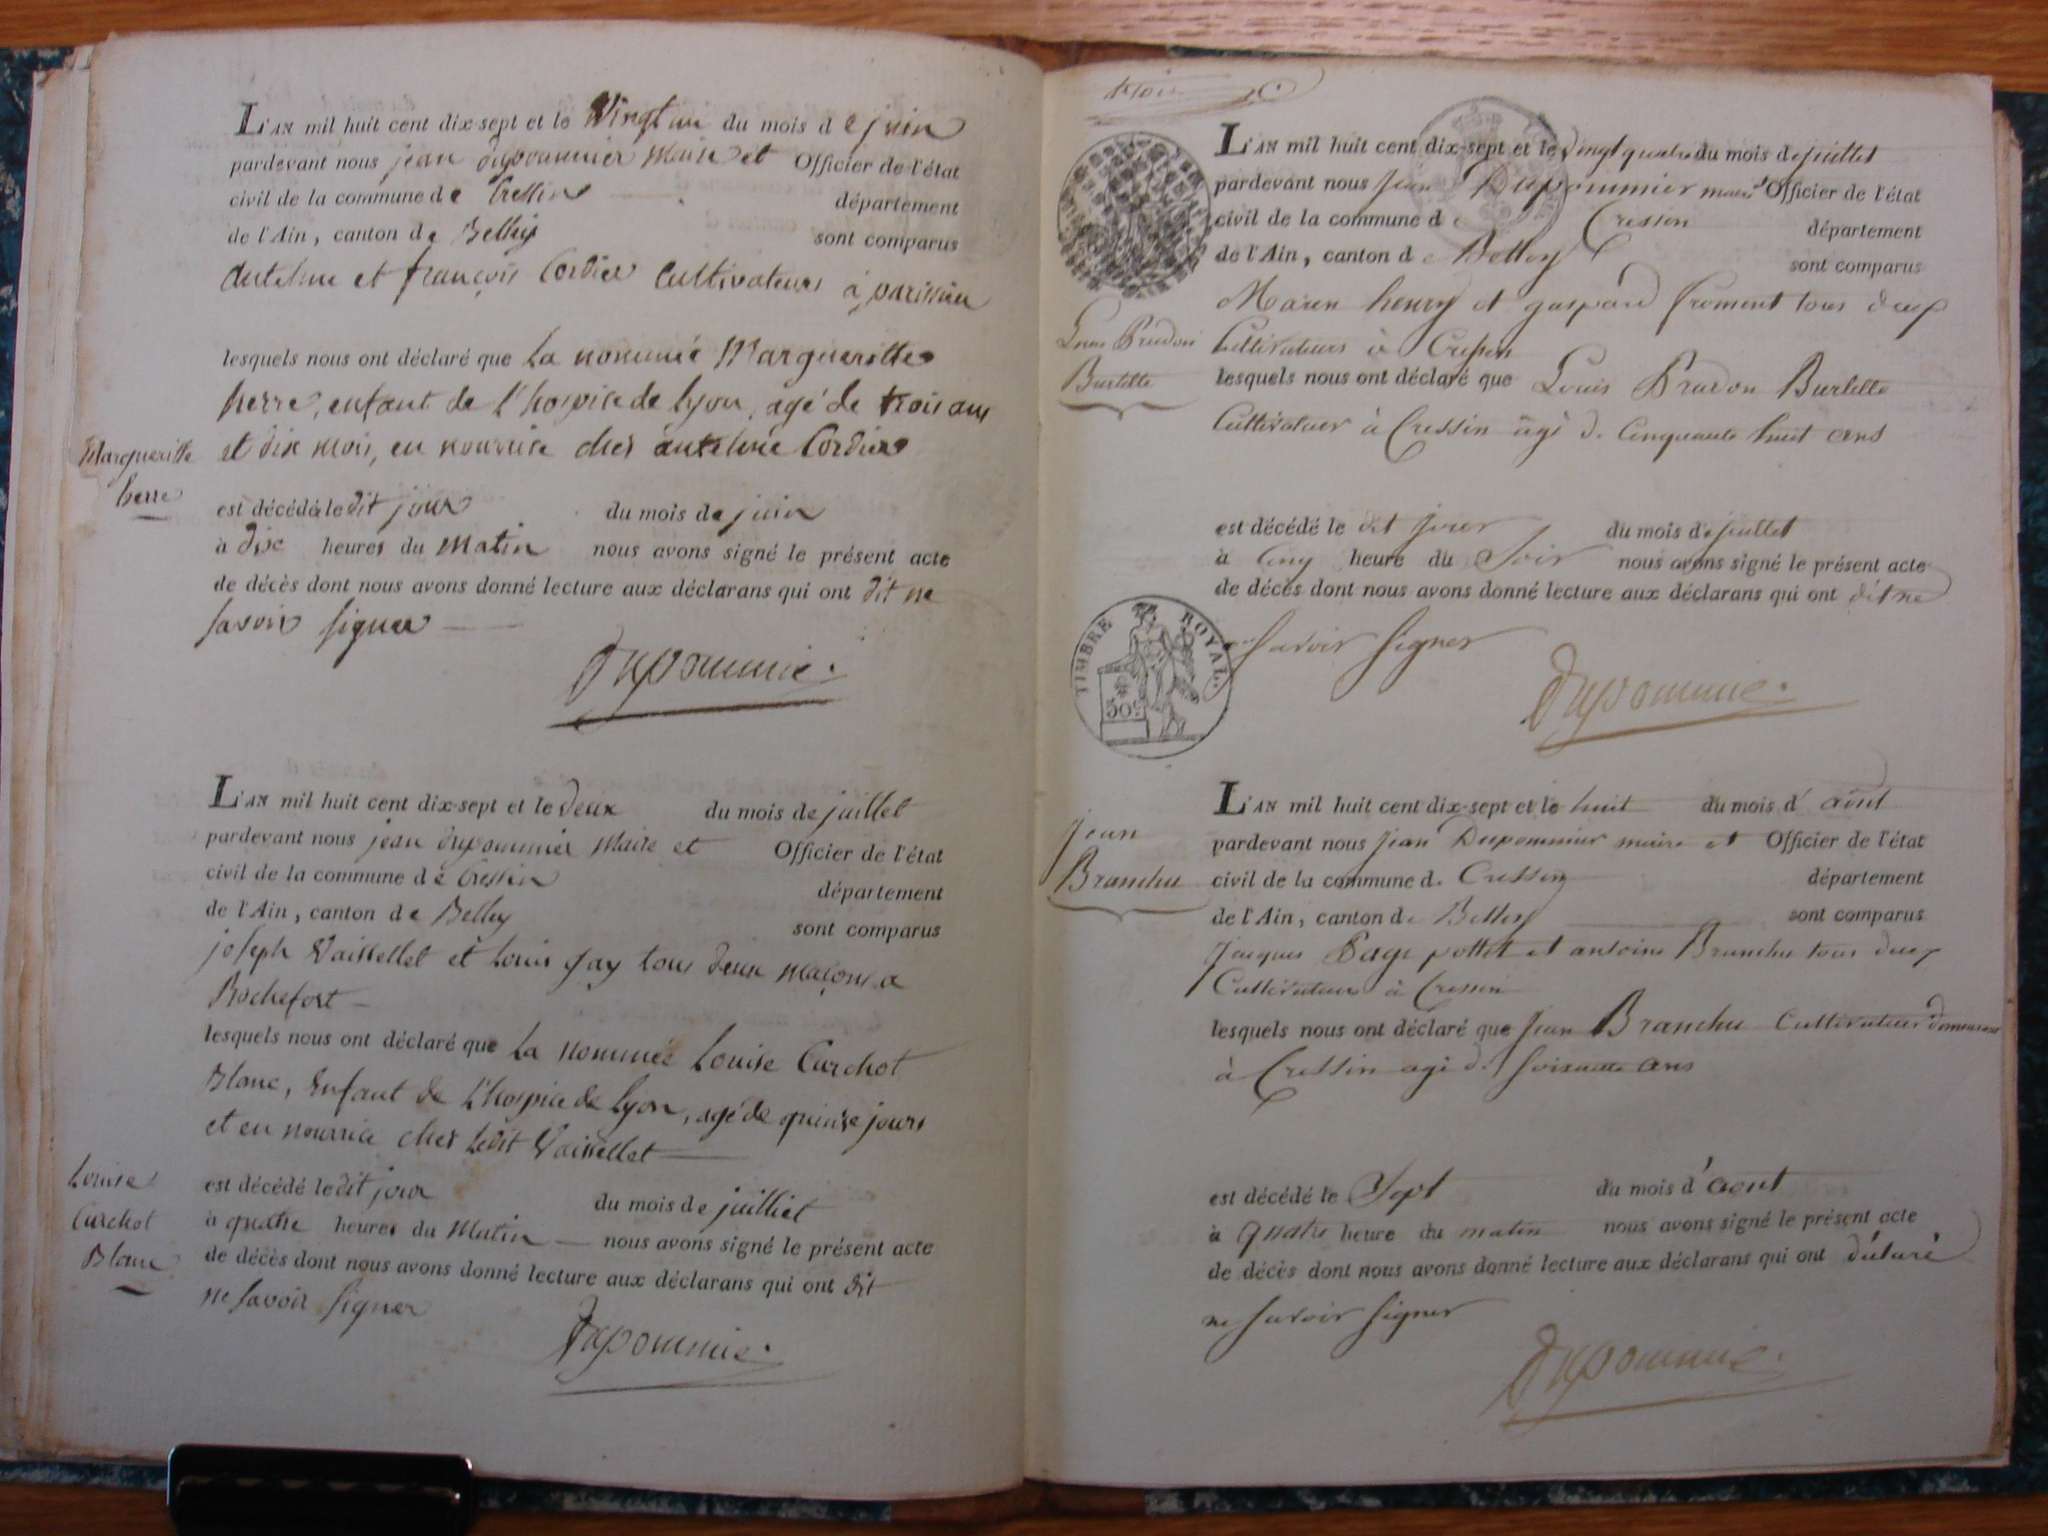 L'AN mil huit cent dix-sept et le Vingt un du mois de juin
pardevant nous jean dupommier Maire et Officier de l'état
civil de la commune de Cressin département
de l'Ain, canton de Belley sont comparus
antelme et françois Cordier Cultivateurs à parissieu
lesquels nous ont déclaré que la nommée Margueritte
herre, enfant de l'hospice de lyon, agé de trois ans
et dix mois, en nourrice ches antelme Cordier
Margueritte
herre
est décédé le dit jour du mois de juin
à dix heures du Matin nous avons signé le présent acte
de décès dont nous avons donné lecture aux déclarans qui ont dit ne
savoir signer
dupommié.
L'AN mil huit cent dix-sept et le deux du mois de juillet
pardevant nous jean dupommier Maire et Officier de l'état
civil de la commune de Cressin département
de l'Ain, canton de Belley sont comparus
joseph Vaissellet et louis gay tous deux maçons a
Rochefort
lesquels nous ont déclaré que la nommée louise Curchot
Blanc, Enfant de l'hospice de lyon, agé de quinze jours
et en nourrice ches ledit Vaissellet
Louise
Curchot
Blanc
est décédé le dit jour du mois de juilliet
à quatre heures du Matin nous avons signé le présent acte
de décès dont nous avons donné lecture aux déclarans qui ont dit
ne savoir signer
dupommié.
trois
L'AN mil huit cent dix-sept et le vingt quatre du mois de juillet
pardevant nous Jean Dupommier maire Officier de l'état
civil de la commune d Cressin département
de l'Ain, canton de Belley sont comparus
Marin henry et gaspard froment tous deux
Cultivateurs à Cressin
Louis Prudon
Burlette
lesquels nous ont déclaré que Louis Prudon Burlette
Cultivateur à Cressin agé de Cinquante huit ans
est décédé le dit jour du mois de juillet
à Cinq heure du Soir nous avons signé le présent acte
de décès dont nous avons donné lecture aux déclarans qui ont dit ne
savoir signer
TIMBRE ROYAL.
50c
dupommié.
L'AN mil huit cent dix-sept et le huit du mois d'août
pardevant nous Jean Dupommier maire et Officier de l'état
civil de la commune de Cressin département
de l'Ain, canton de Belley sont comparus
jean
Branchu
Jacques Page pottet et antoine Branchu tous deux
Cultivateurs à Cressin
lesquels nous ont déclaré que Jean Branchu Cultivateur demeurant
à Cressin agé de soixante ans
est décédé le Sept du mois d'aout
à quatre heure du matin nous avons signé le présent acte
de décès dont nous avons donné lecture aux déclarans qui ont déclaré
ne savoir signer
dupommié.